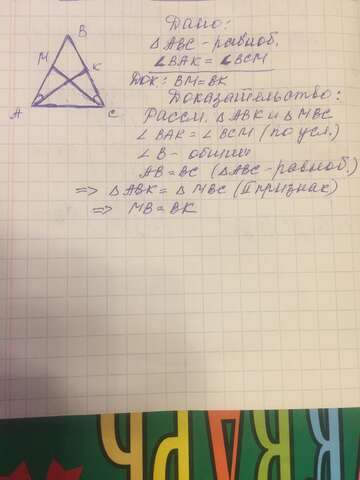 Дано:
△ABC - равноб.
∠BAK = ∠BCM
Док: BM = BK
Доказательство:
Рассм. △ABK и △MBC
∠BAK = ∠BCM (по усл.)
∠B - общий
AB = BC (△ABC - равноб.)
=> △ABK = △MBC (II признак)
=> MB = BK
B
M
K
A
C